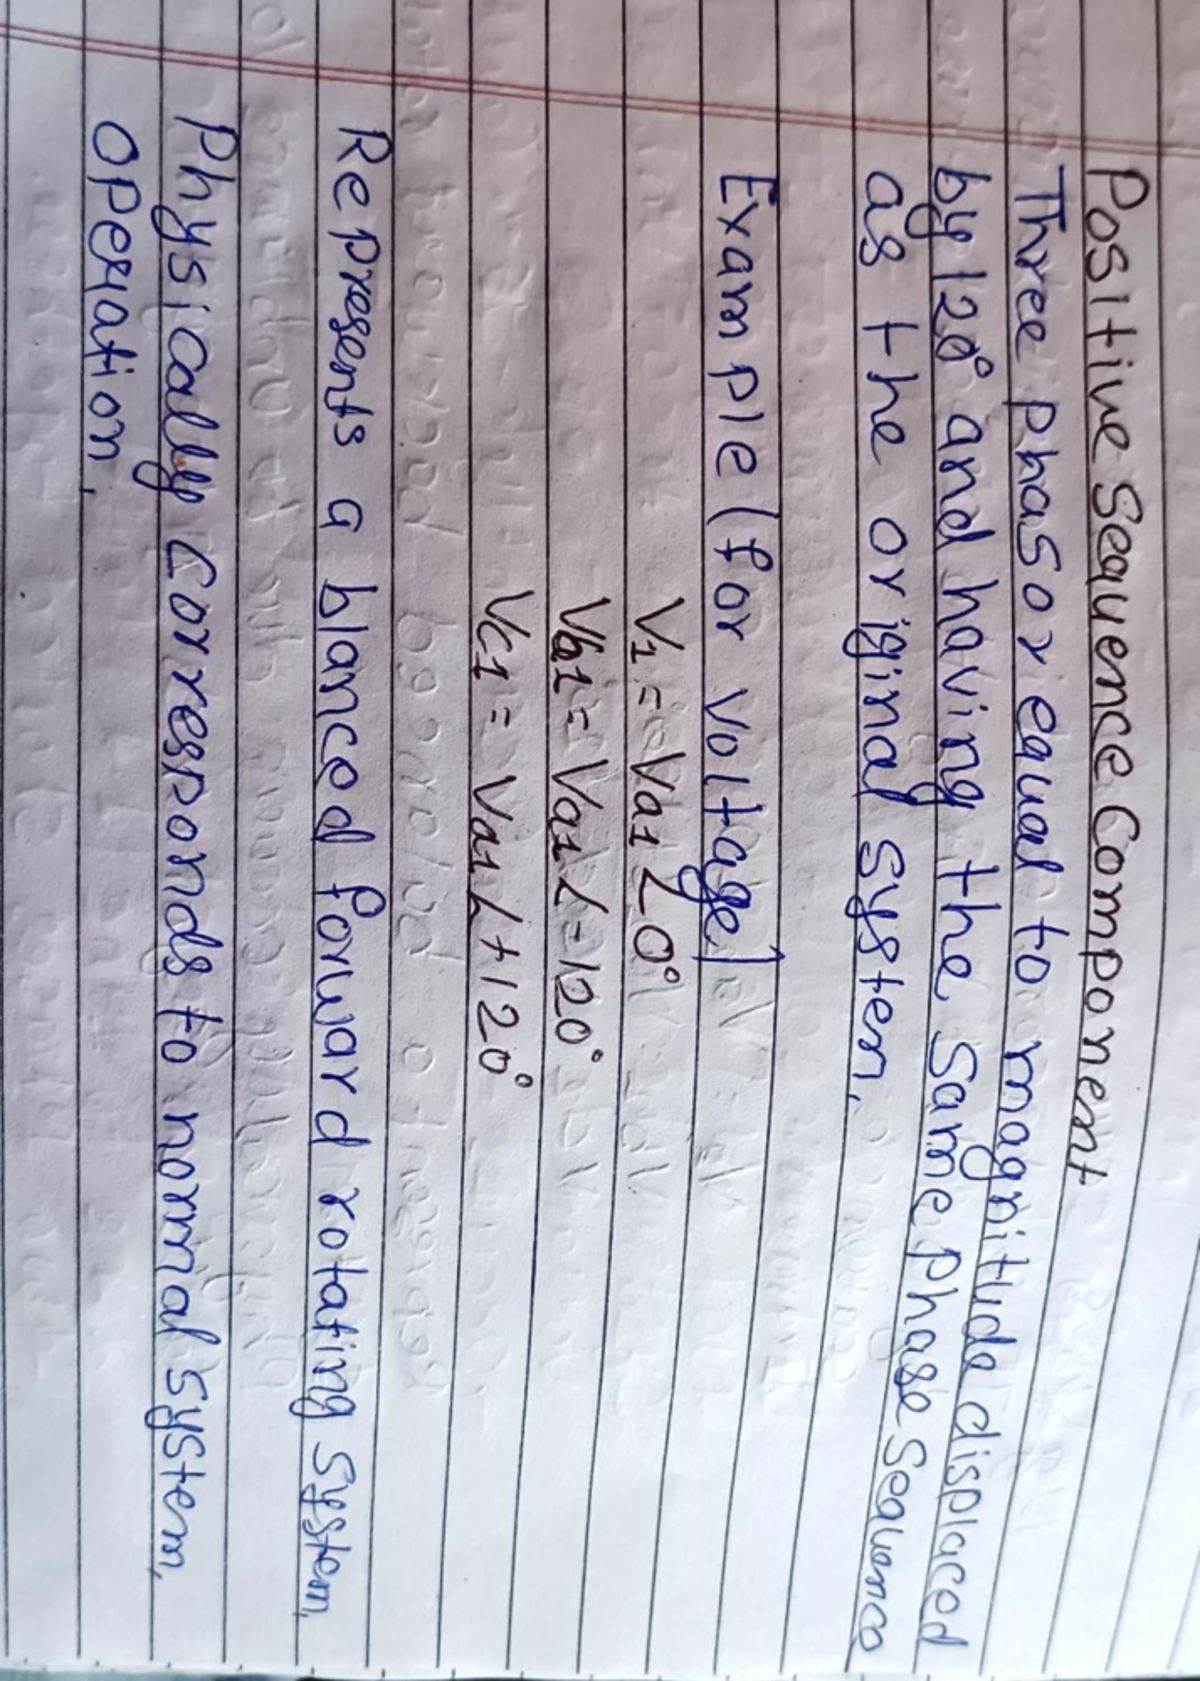 Positive Sequence Component
Three phasor equal to magnitude displaced
by 120° and having the same phase sequence
as the original system.
Example (for voltage)
V1 = Va1 ∠0°
Vb1 = Va1 ∠-120°
Vc1 = Va1 ∠+120°
Represents a blanced forward rotating system,
Physically corresponds to normal system,
operation,